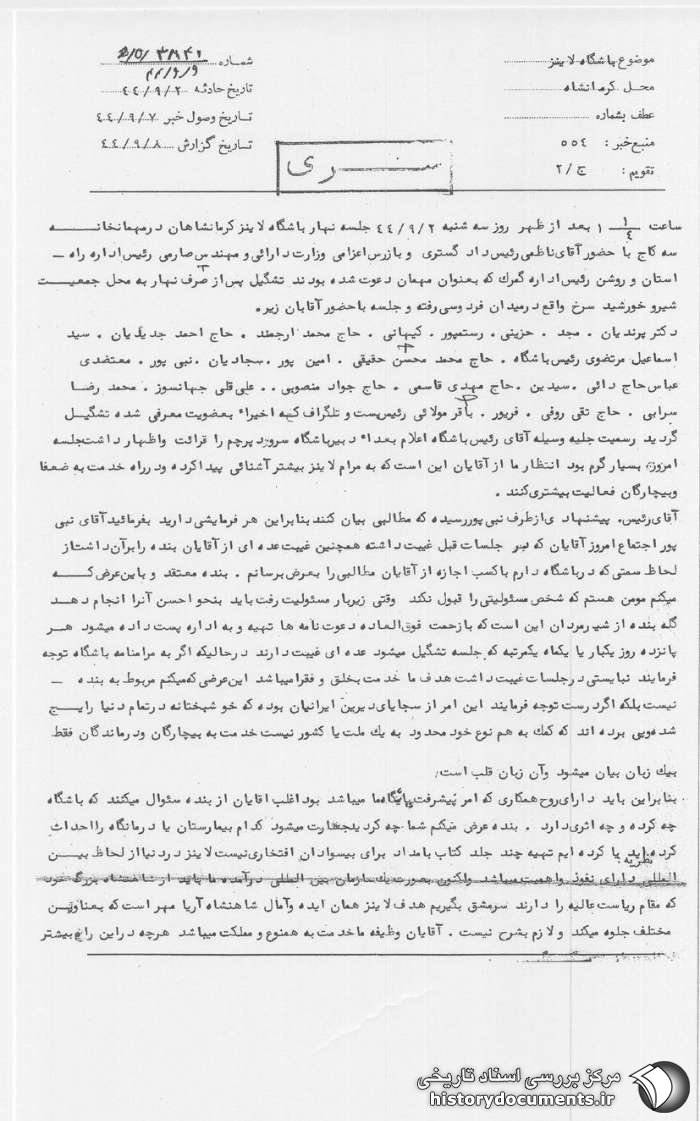 موضوع باشگاه لاینز
محل کرمانشاه
عطف بشماره
منبع خبر : ٥٥٤
تقویم : ج/٢
شماره
٤٤/٩/٩
تاریخ حادثه ٤٤/٩/٢
تاریخ وصول خبر ٤٤/٩/٧
تاریخ گزارش ٤٤/٩/٨
سری
ساعت ١ ١/٤ بعد از ظهر روز سه شنبه ٤٤/٩/٢ جلسه نهار باشگاه لاینز کرمانشاهان درمهمانخانه
سه کاج با حضور آقای ناظمی رئیس داد گستری و بازرس اعزامی وزارت دارائی و مهندس صارمی رئیس اداره راه –
استان و روشن رئیس اداره گمرك که بعنوان مهمان دعوت شده بودند تشکیل پس از صرف نهار به محل جمعیت
شیرو خورشید سرخ واقع درمیدان فردوسی رفته و جلسه با حضور آقایان زیر.
دکتر پرندیان . مجد . حزینی . رستمپور . کیهانی . حاج محمد ارجمند . حاج احمد جدیدیان . سید
اسماعیل مرتضوی رئیس باشگاه . حاج محمد محسن حقیقی . امین پور . سجادیان . نبی پور . معتضدی
عباس حاج دائی . سیدین . حاج مهدی قاسمی . حاج جواد منصوبی . . علی قلی جهانسوز . محمد رضا
سرابی . حاج تقی روفی . فریور . باقر مولائی رئیس پست و تلگراف که اخیراً بعضویت معرفی شده تشکیل
گردید رسمیت جلسه وسیله آقای رئیس باشگاه اعلام بعداً دبیر باشگاه سرود پرچم را قرائت واظهار داشت جلسه
امروز بسیار گرم بود انتظار ما از آقایان این است که به مرام لاینز بیشتر آشنائی پیدا کرده ودرراه خدمت به ضعفا
وبیچارگان فعالیت بیشتری کنند .
آقای رئیس . پیشنهادی از طرف نبی پور رسیده که مطالبی بیان کنند بنابراین هر فرمایشی دارید بفرمائید آقای نبی
پور اجتماع امروز آقایان که در جلسات قبل غیبت داشته همچنین غیبت عده ای از آقایان بنده را برآن داشت از
لحاظ سمتی که در باشگاه دارم با کسب اجازه از آقایان مطالبی را بعرض برسانم . بنده معتقد و باین عرضی که
میکنم مومن هستم که شخص مسئولیتی را قبول نکند وقتی زیر بار مسئولیت رفت باید بنحو احسن آنرا انجام دهد
گله بنده از شیرمردان این است که بازحمت فوق العاده دعوت نامه ها تهیه و به اداره پست داده میشود هر
پانزده روز یکبار یا یکماه یکمرتبه که جلسه تشکیل میشود عده ای غیبت دارند درحالیکه اگر به مرامنامه باشگاه توجه
فرمایند نبایستی در جلسات غیبت داشت هدف ما خدمت بخلق و فقرا میباشد این عرضی که میکنم مربوط به بنده –
نیست بلکه اگر درست توجه فرمایند این امر از سجایای دیرین ایرانیان بوده که خوشبختانه در تمام دنیا رایج
شده و پی برده اند که کمك به هم نوع خود محدود به یك ملت یا کشور نیست خدمت به بیچارگان ودرماندگان فقط
بیك زبان بیان میشود وآن زبان قلب است .
بنابراین باید دارای روح همکاری که امر پیشرفت باشگاه ما میباشد بود اغلب آقایان از بنده سئوال میکنند که باشگاه
چه کرده و چه اثری دارد . بنده عرض میکنم شما چه کردید جسارت میشود کدام بیمارستان یا درمانگاه را احداث
کرده اید یا کرده ایم تهیه چند جلد کتاب بامداد برای بیسوادان افتخاری نیست لاینز دردنیا از لحاظ بین
نظریه .
المللی دارای نفوذ واهمیت میباشد واکنون بصورت یك سازمان بین المللی درآمده ما باید از شاهنشاه بزرگ خود
که مقام ریاست عالیه را دارند سرمشق بگیریم هدف لاینز همان ایده وآمال شاهنشاه آریا مهر است که بعناوین
مختلف جلوه میکند و لازم بشرح نیست . آقایان وظیفه ما خدمت به همنوع و مملکت میباشد هرچه در این راه بیشتر
مرکز بررسی اسناد تاریخی
historydocuments.ir